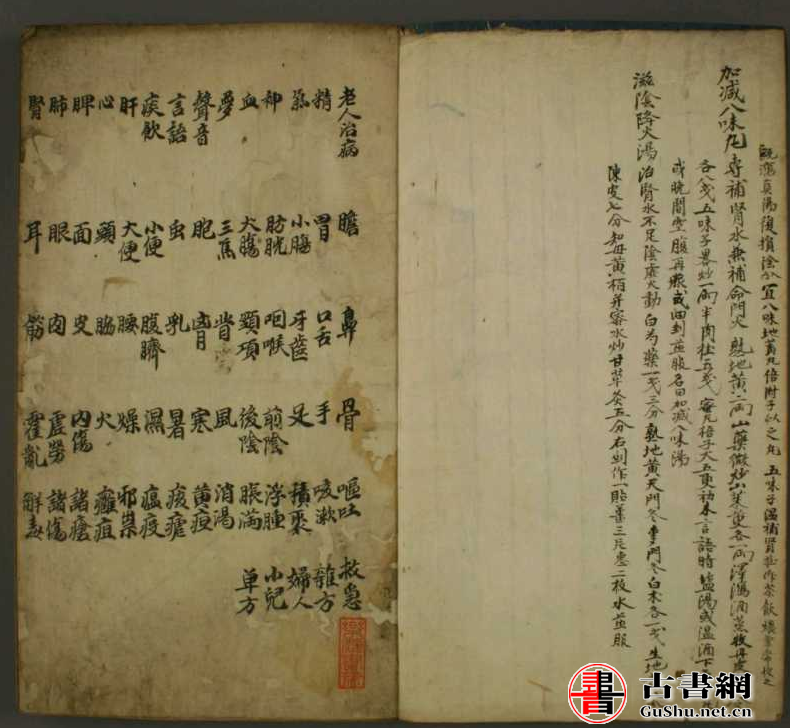 既瀉真陽復損陰分宜八味地黃丸倍附子以之丸 五味子溫補腎 作茶飲
加減八味丸 專補腎水兼補命門火 熟地黃二兩山藥微炒山茱萸各一兩澤瀉酒蒸牧丹皮
各八戔五味子畧炒一兩半肉桂五戔 蜜丸梧子大五更初未言語時塩湯或溫酒下
或晩間空腹再服或 剉煎服名曰加減八味湯
滋陰降火湯 治腎水不足陰虛火動 白芍藥一戔三分 熟地黃天門冬麥門冬白朮各一戔 生地
陳皮七分知母黃栢并蜜水炒甘草炙五分右剉作一貼薑三片棗二枚水煎服
老人治病 精 氣 神 血 夢 聲音 言語 痰飲 肝 心 脾 肺 腎
膽 胃 小腸 膀胱 大腸 三焦 胞 虫 小便 大便 頭 面 眼 耳
鼻 口舌 牙齒 咽喉 頸項 背 胷 乳 腹臍 腰 脇 皮 肉 筋
骨 手 足 前陰 後陰 風 寒 暑 濕 燥 火 內傷 虛勞 霍亂
嘔吐 咳嗽 積聚 浮腫 脹滿 消渴 黃疸 痎瘧 瘟疫 邪祟 癰疽 諸瘡 諸傷 解毒
救急 雜方 婦人 小兒 単方
古書網
GuShu.net.cn